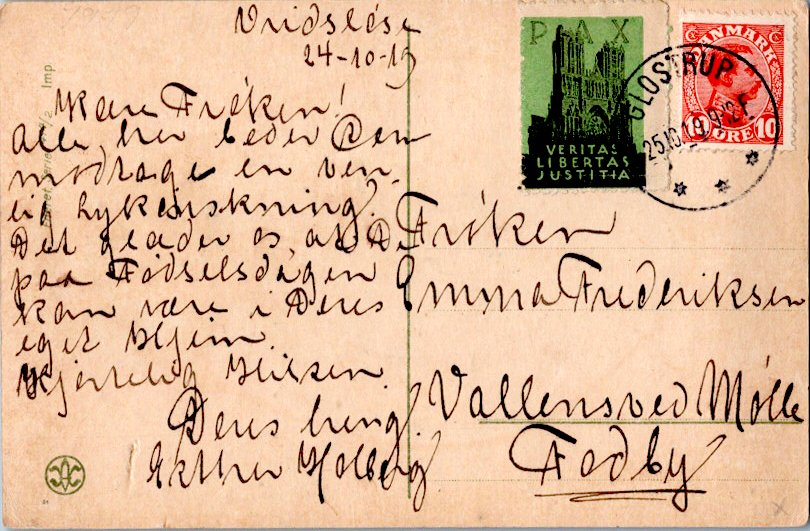 Vridsløse
24-10-19
Kære Frøken!
alle her beder Dem
modtage en ven-
lig Lykønskning.
Det glæder os, at De
paa Fødselsdagen
kan være i Deres
eget Hjem.
Hjertelig Hilsen.
Deres heng.
Esther Holberg
PAX
VERITAS
LIBERTAS
JUSTITIA
DANMARK
10 ØRE 10
GLOSTRUP
25.10.19. 9-12 F.
Frøken
Emma Frederiksen
Vallensved Mølle
Fodby
Imp